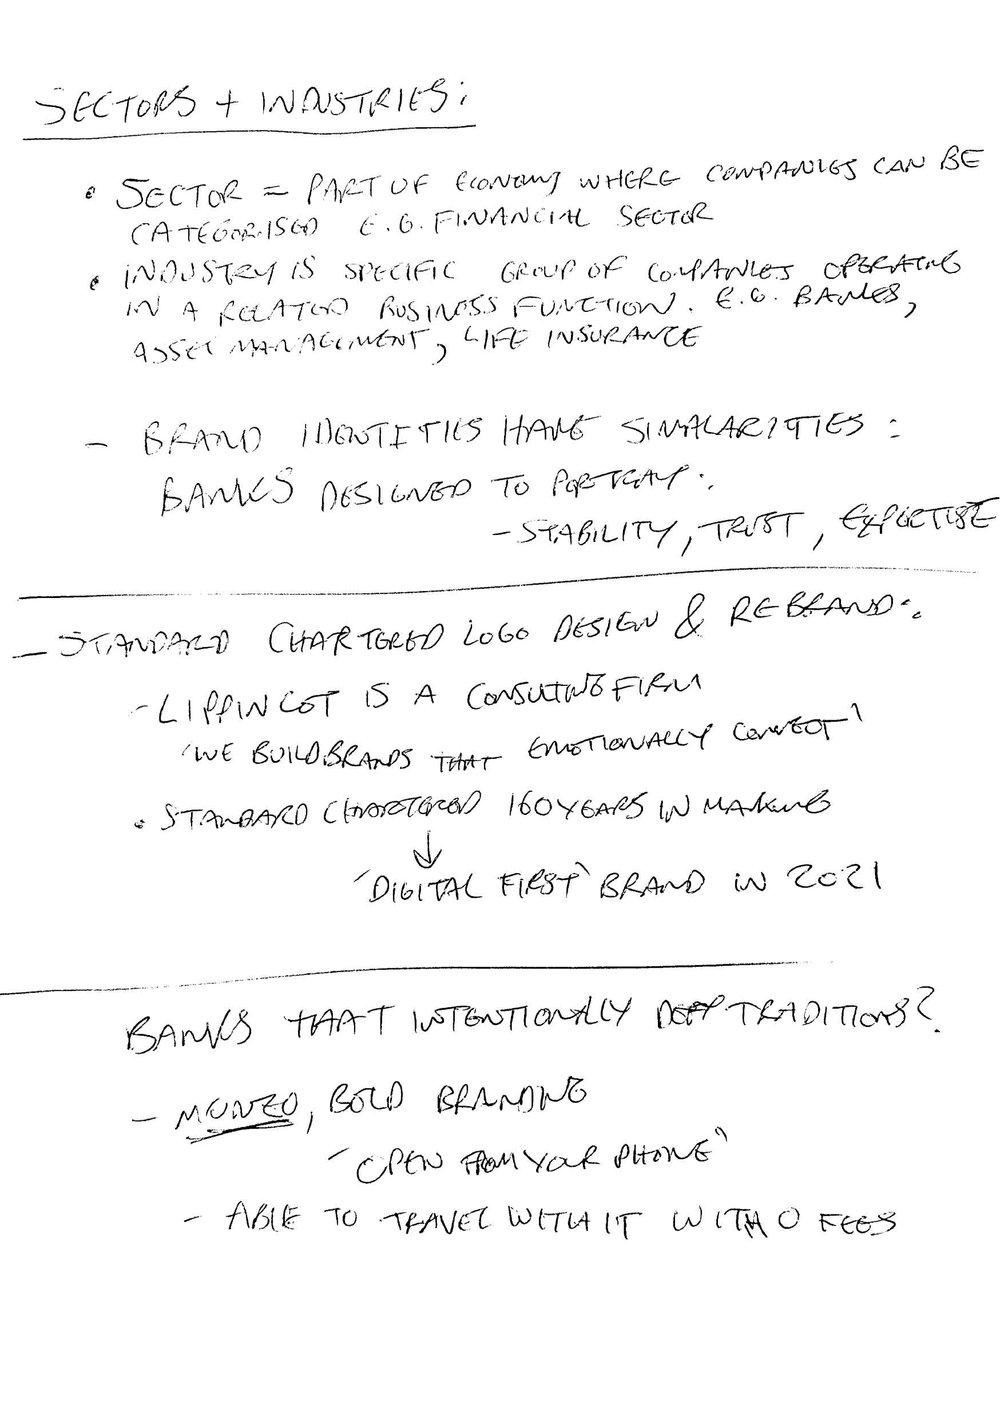 SECTORS + INDUSTRIES:
• SECTOR = PART OF ECONOMY WHERE COMPANIES CAN BE
CATEGORISED E.G. FINANCIAL SECTOR
• INDUSTRY IS SPECIFIC GROUP OF COMPANIES OPERATING
IN A RELATED BUSINESS FUNCTION. E.G. BANKS,
ASSET MANAGEMENT, LIFE INSURANCE
- BRAND IDENTITIES HAVE SIMILARITIES :
BANKS DESIGNED TO PORTRAY :
- STABILITY, TRUST, EXPERTISE
- STANDARD CHARTERED LOGO DESIGN & REBRAND :
- LIPPINCOT IS A CONSULTING FIRM
'WE BUILD BRANDS THAT EMOTIONALLY CONNECT'
• STANDARD CHARTERED 160 YEARS IN MAKING
↓
'DIGITAL FIRST' BRAND IN 2021
BANKS THAT INTENTIONALLY DEFY TRADITIONS?
- MONZO, BOLD BRANDING
'OPEN FROM YOUR PHONE'
- ABLE TO TRAVEL WITH IT WITH 0 FEES